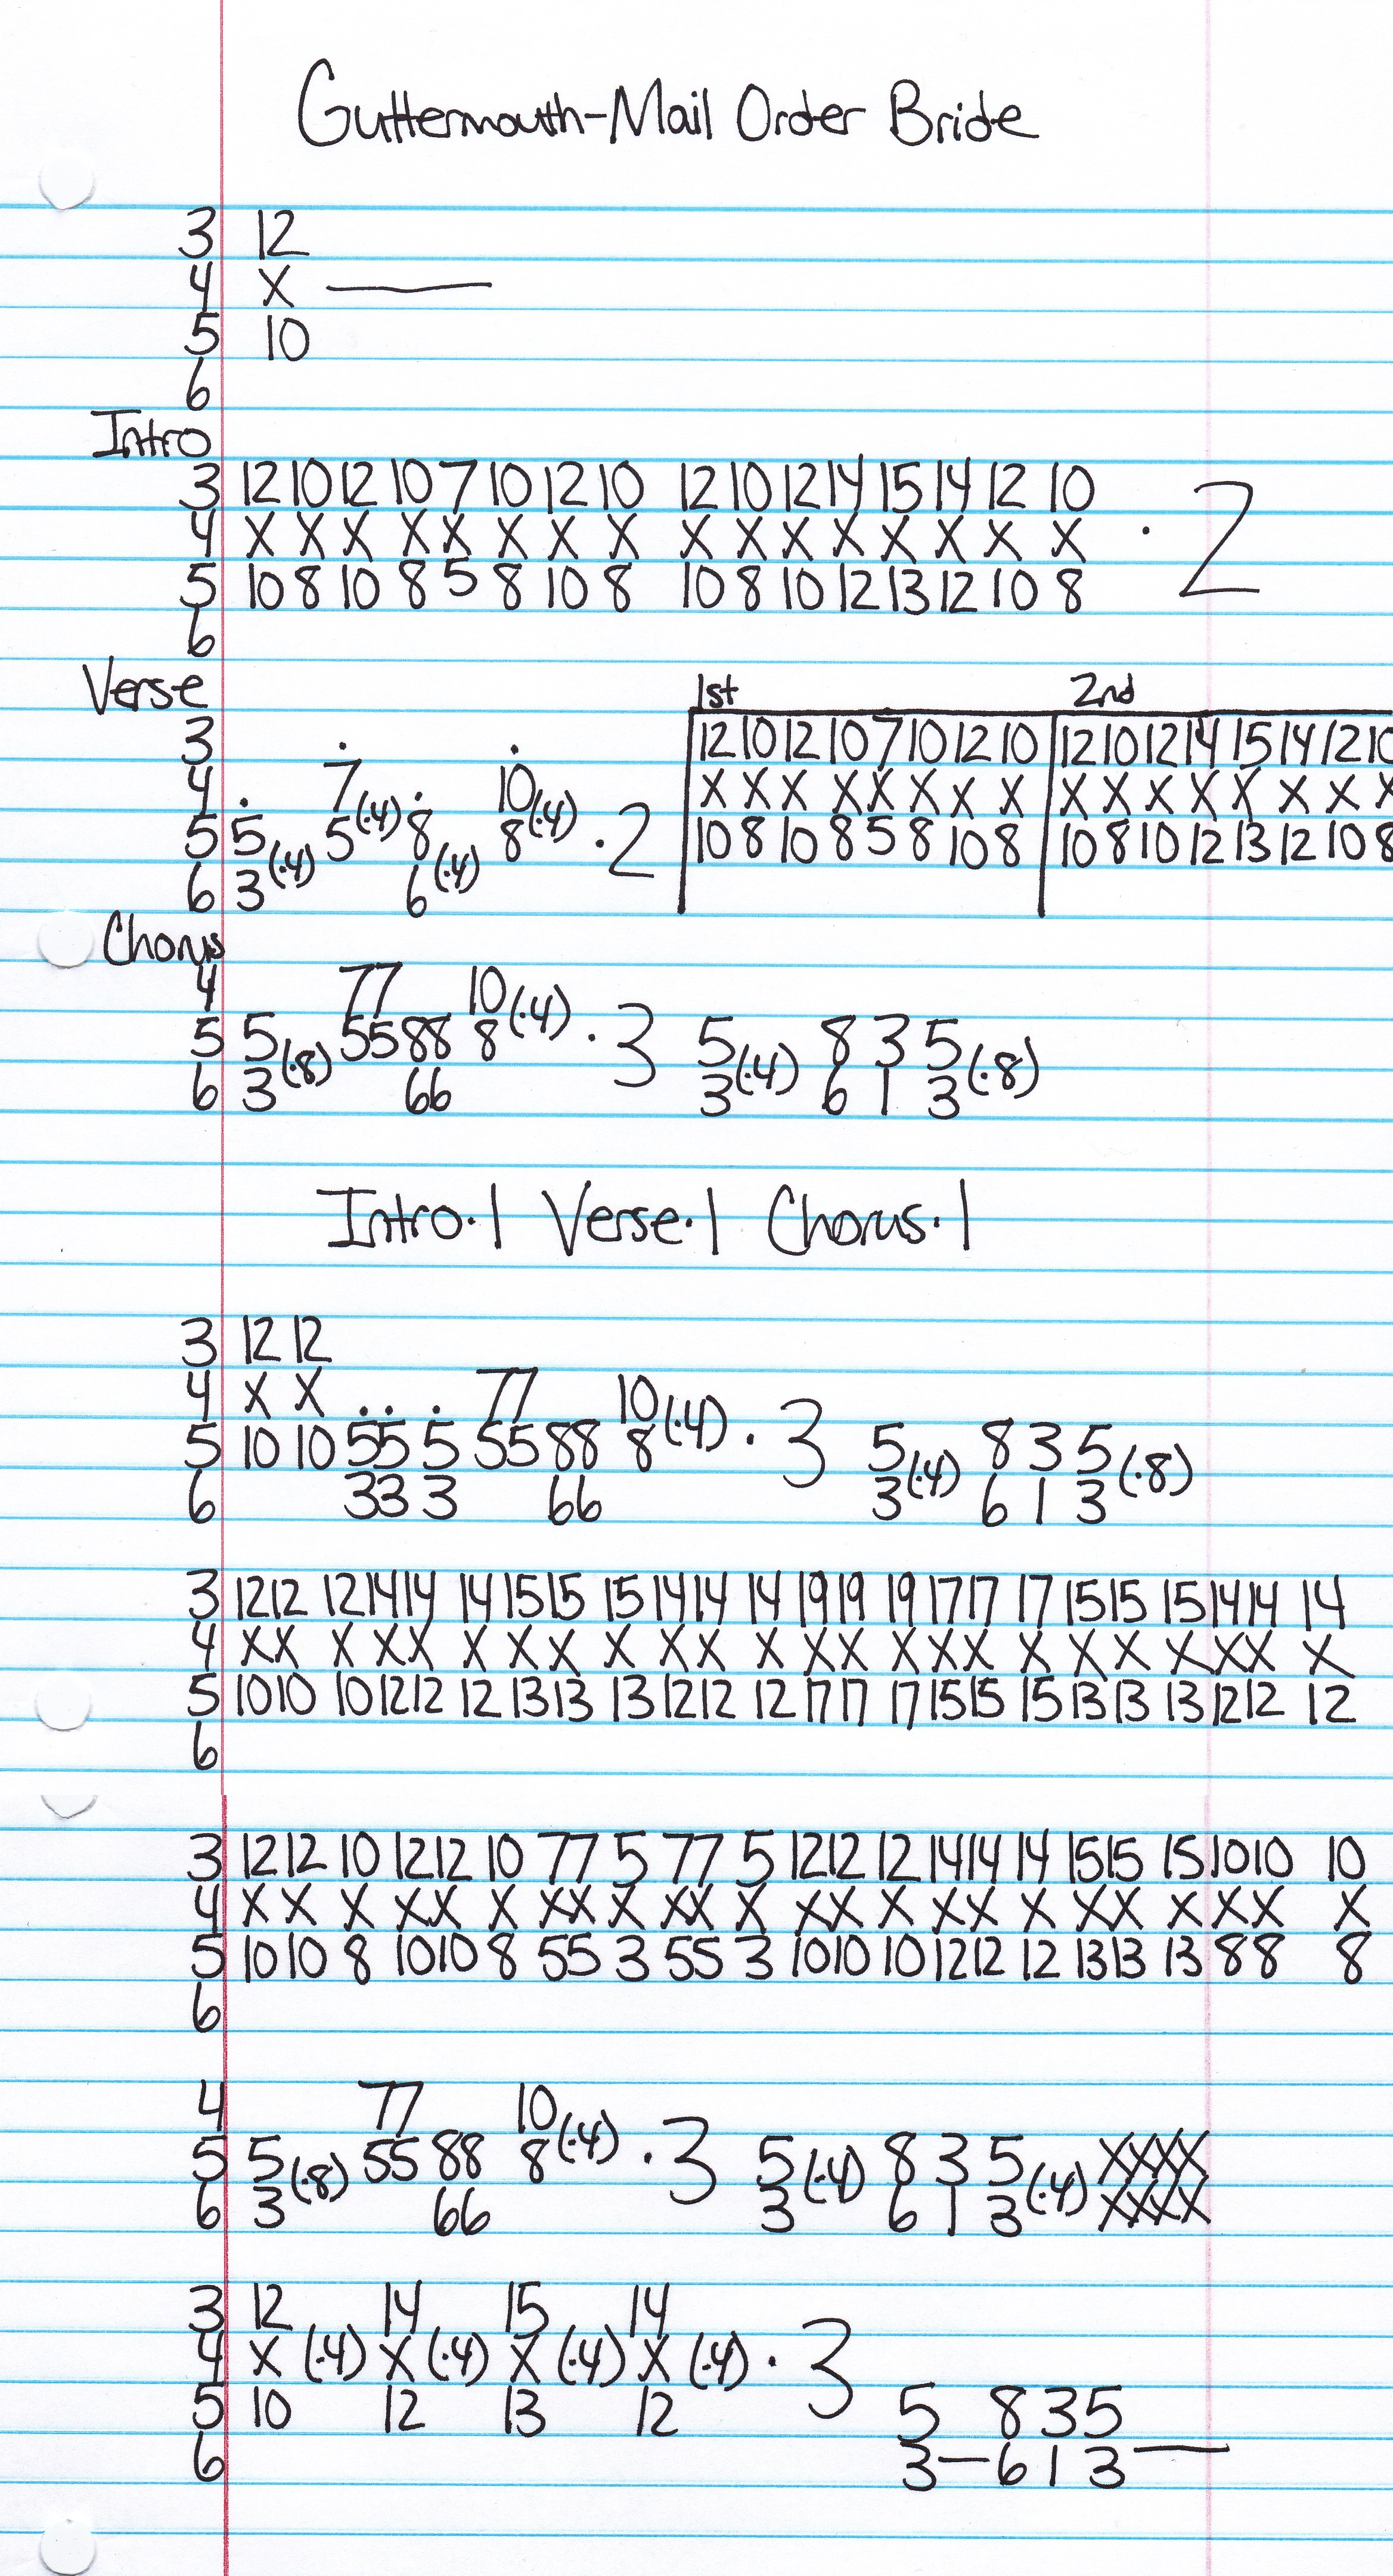 Guttermouth-Mail Order Bride
3 12
4 X ———
5 10
6
Intro
3 12 10 12 10 7 10 12 10 12 10 12 14 15 14 12 10
4 X X X X X X X X X X X X X X X X · 2
5 10 8 10 8 5 8 10 8 10 8 10 12 13 12 10 8
6
Verse 1st 2nd
3 . . 12 10 12 10 7 10 12 10 12 10 12 14 15 14 12 10
4 . 7 (·4) . 10 (·4) X X X X X X X X X X X X X X X X
5 5 (·4) 5 8 (·4) 8 · 2 10 8 10 8 5 8 10 8 10 8 10 12 13 12 10 8
6 3 6
Chorus
4 77 10 (·4)
5 5 (·8) 55 88 8 · 3 5 (·4) 8 3 5 (·8)
6 3 66 3 6 1 3
Intro·1 Verse·1 Chorus·1
3 12 12
4 X X . . . 77 10 (·4)
5 10 10 55 5 55 88 8 · 3 5 (·4) 8 3 5 (·8)
6 33 3 66 3 6 1 3
3 12 12 12 14 14 14 15 15 15 14 14 14 19 19 19 17 17 17 15 15 15 14 14 14
4 X X X X X X X X X X X X X X X X X X X X X X X X
5 10 10 10 12 12 12 13 13 13 12 12 12 17 17 17 15 15 15 13 13 13 12 12 12
6
3 12 12 10 12 12 10 77 5 77 5 12 12 12 14 14 14 15 15 15 10 10 10
4 X X X X X X XX X XX X X X X X X X X X X X X X
5 10 10 8 10 10 8 55 3 55 3 10 10 10 12 12 12 13 13 13 8 8 8
6
4 77 10 (·4)
5 5 (·8) 55 88 8 · 3 5 (·4) 8 3 5 (·4) XXXX
6 3 66 3 6 1 3 XXXX
3 12 14 15 14
4 X (·4) X (·4) X (·4) X (·4) · 3
5 10 12 13 12 5 8 3 5
6 3 — 6 1 3 —